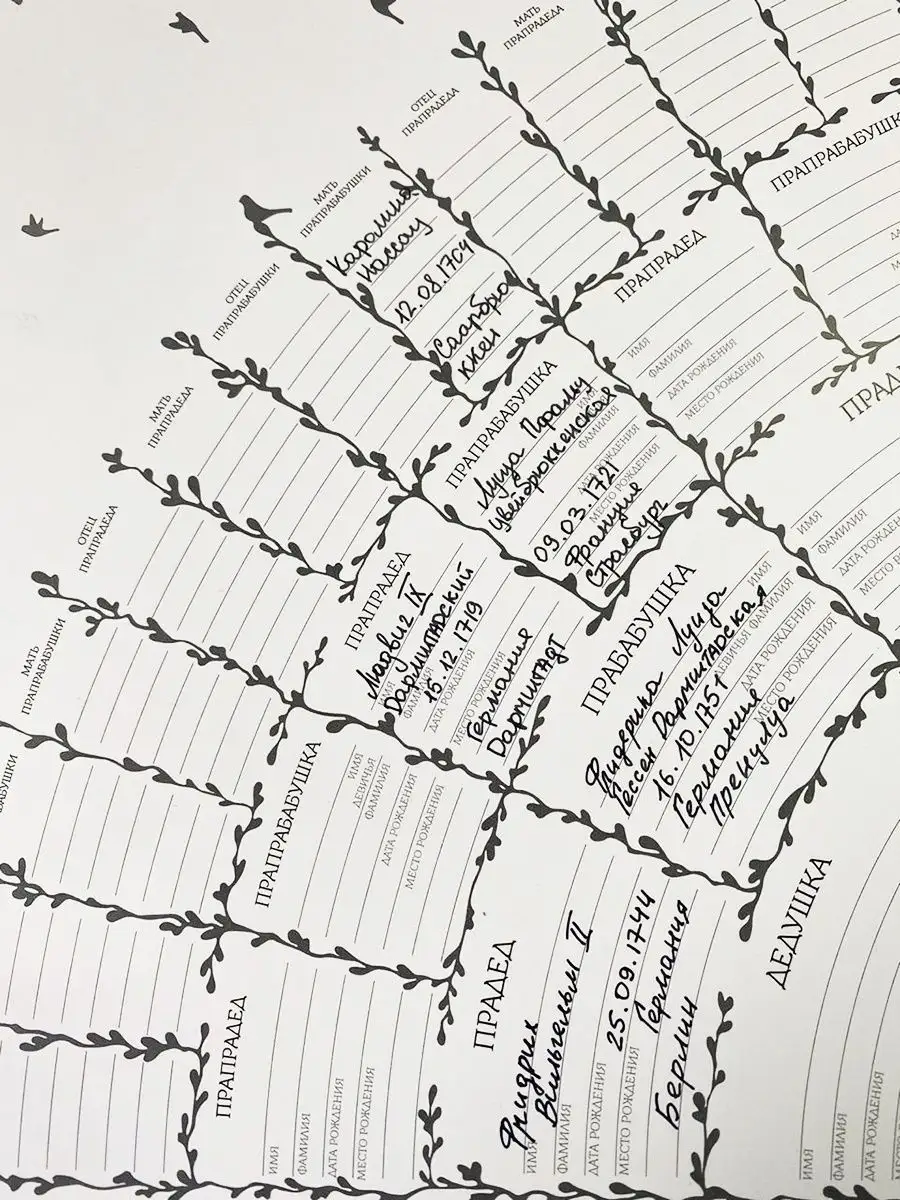 МАТЬ
ПРАПРАДЕДА
ОТЕЦ
ПРАПРАДЕДА
МАТЬ
ПРАПРАБАБУШКИ
Каролина
Нассау
12.08.1704
Саарбрю
ккен
ОТЕЦ
ПРАПРАБАБУШКИ
МАТЬ
ПРАПРАДЕДА
ОТЕЦ
ПРАПРАДЕДА
МАТЬ
ПРАПРАБАБУШКИ
АБУШКИ
ПРАПРАБАБУШК
ПРАПРАДЕД
ИМЯ
ФАМИЛИЯ
ДАТА РОЖДЕНИЯ
МЕСТО РОЖДЕНИЯ
ПРАПРАБАБУШКА
ИМЯ
ФАМИЛИЯ
ДАТА РОЖДЕНИЯ
МЕСТО РОЖДЕНИЯ
Луиза
Цвейбрюккенская
09.03.1721
Франция
Страсбург
ПРАПРАДЕД
ИМЯ
ФАМИЛИЯ
ДАТА РОЖДЕНИЯ
МЕСТО РОЖДЕНИЯ
Людвиг IX
15.12.1719
Германия
Дармштадт
ПРАПРАБАБУШКА
ИМЯ
ДЕВИЧЬЯ
ФАМИЛИЯ
ДАТА РОЖДЕНИЯ
МЕСТО РОЖДЕНИЯ
ПРАПРАДЕД
ИМЯ
ФАМИЛИЯ
ДАТА РОЖДЕНИЯ
МЕСТО РОЖДЕНИЯ
ПРАД
ИМЯ
ФАМИЛИЯ
ДАТА РОЖДЕН
МЕСТО РОЖ
ПРАБАБУШКА
ИМЯ
ДЕВИЧЬЯ ФАМИЛИЯ
ДАТА РОЖДЕНИЯ
МЕСТО РОЖДЕНИЯ
Луиза
Гессен
16.10.1751
Германия
ПРАДЕД
ИМЯ
ФАМИЛИЯ
ДАТА РОЖДЕНИЯ
МЕСТО РОЖДЕНИЯ
Фридрих
Вильгельм II
25.09.1744
Германия
Берлин
ДЕДУШКА
ИМЯ
ФАМИЛИЯ
ДАТА РОЖДЕНИЯ